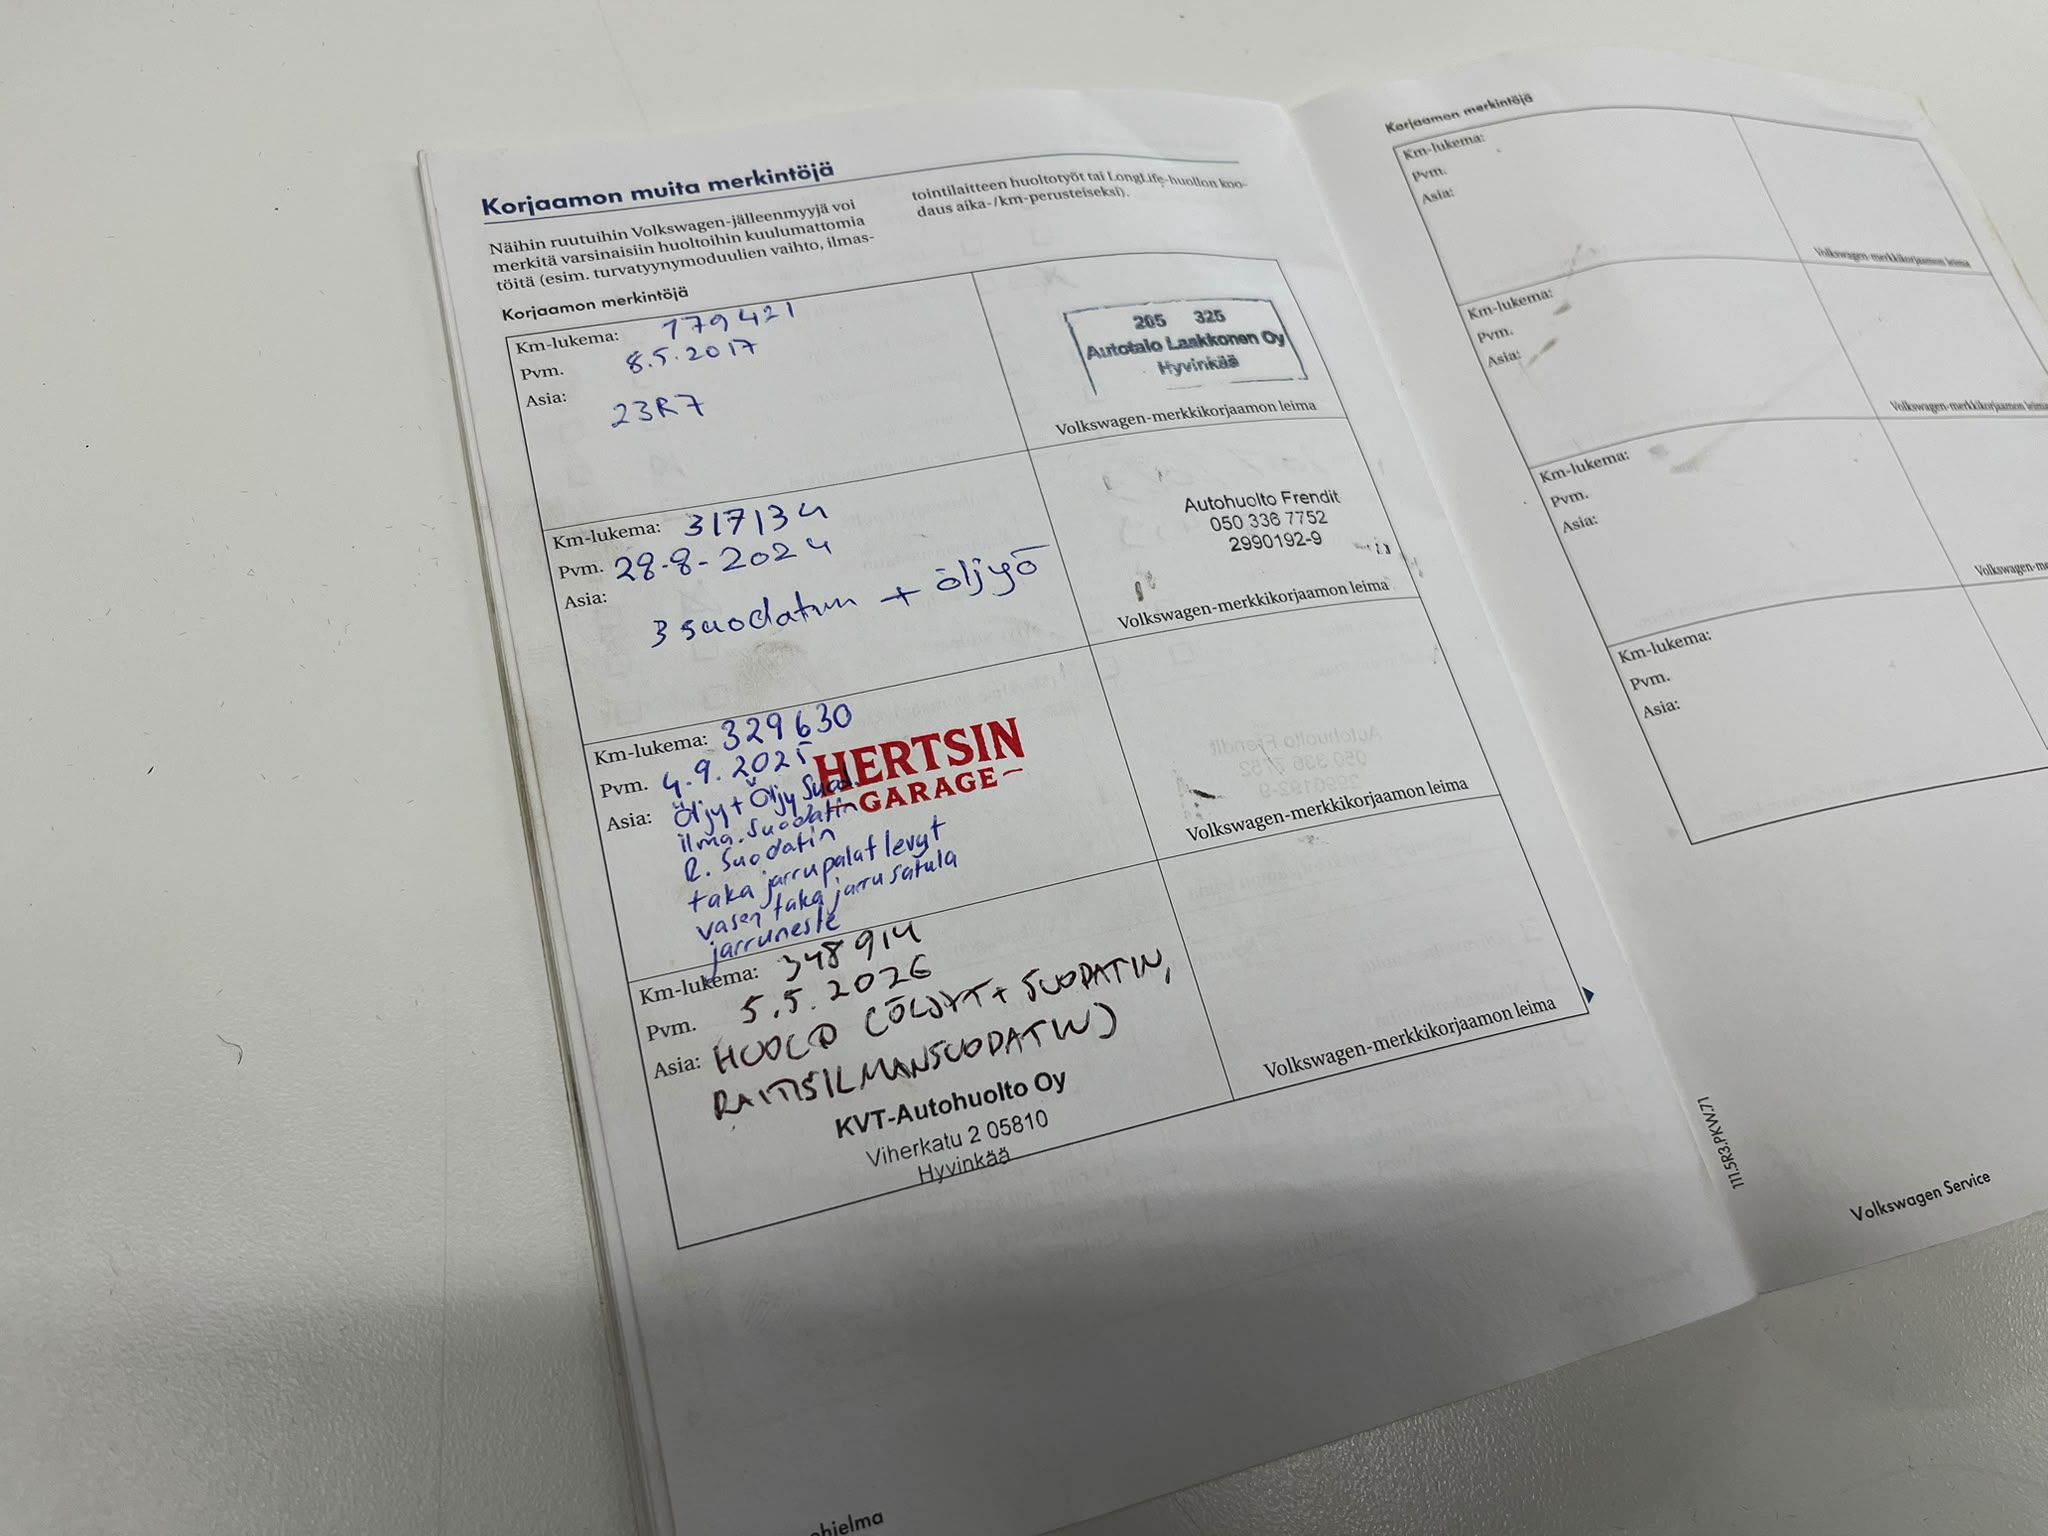 Korjaamon muita merkintöjä
Näihin ruutuihin Volkswagen-jälleenmyyjä voi
merkitä varsinaisiin huoltoihin kuulumattomia
töitä (esim. turvatyynymoduulien vaihto, ilmas-
tointilaitteen huoltotyöt tai LongLife-huollon koo-
daus aika-/km-perusteiseksi).
Korjaamon merkintöjä
Km-lukema: 179421
Pvm. 8.5.2017
Asia: 23R7
205 325
Autotalo Laakkonen Oy
Hyvinkää
Volkswagen-merkkikorjaamon leima
Km-lukema: 317134
Pvm. 28-8-2024
Asia:
3 suodatun + öljyö
Autohuolto Frendit
050 336 7752
2990192-9
Volkswagen-merkkikorjaamon leima
Km-lukema: 329630
Pvm. 4.9.2025
Asia: Öljy + Öljy Suod.
ilma.suodatin
R. Suodatin
taka jarrupalat levyt
vasen taka jarru satula
jarruneste
HERTSIN
GARAGE
Volkswagen-merkkikorjaamon leima
Km-lukema: 348914
Pvm. 5.5.2026
Asia: HUOLTO (ÖLJYT + SUODATIN,
RAITISILMANSUODATIN)
KVT-Autohuolto Oy
Viherkatu 2 05810
Hyvinkää
Volkswagen-merkkikorjaamon leima
ohjelma
Korjaamon merkintöjä
Km-lukema:
Pvm.
Asia:
Volkswagen-merkkikorjaamon leima
Km-lukema:
Pvm.
Asia:
Volkswagen-merkkikorjaamon leima
Km-lukema:
Pvm.
Asia:
Volkswagen-me
Km-lukema:
Pvm.
Asia:
111.5R3.PKW.71
Volkswagen Service